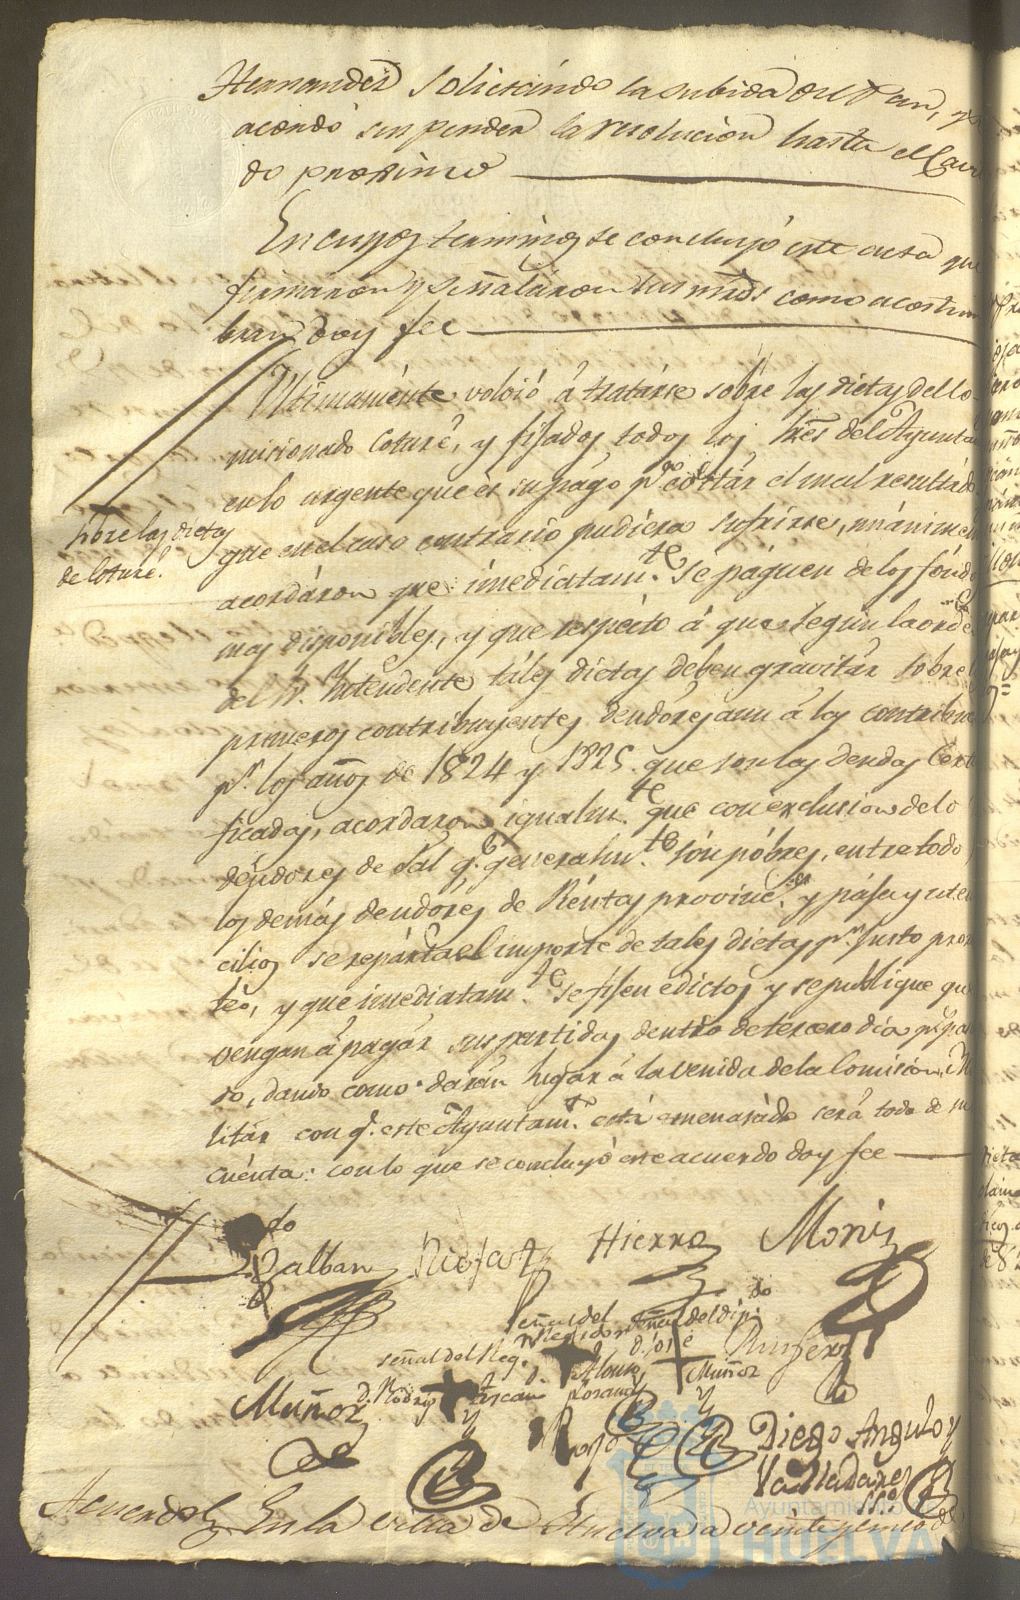 Hernandez Solicitando la subida del Pan, se
acordó suspender la resolucion hasta el Cavil
do proximo
En cuyos terminos se concluyó este acta que
firmaron y señalaron sus mrds como acostum
bran doy fee
Ultimamente volvió á tratarse sobre las dietas del Co
misionado Coturé, y fijados todos los Sres del Ayunta
en lo urgente que es su págo pa evitár el mal resultado
que en el caso contrario pudiera sufrirse, unánimem
sobre las dietas
de Coturé.
acordáron que imediatamte se páguen de los fóndos
mas disponibles, y que respécto á que segun la orden
del Sr. Yntendente táles dietas deben gravitár sobre
primeros contribuyentes deudóres aun á las contribuc
pr. los años de 1824 y 1825. que son las deudas Certi
ficadas, acordaron igualmte que con exclusion de lo
déudores de Sál q. generalmte són póbres, entre todo
los demás deudores de Réntas provinc.s y pája y uten
cilios se repárta el importe de tales dietas pr. justo pror
teo, y que imediatamte se fijen edictos y se publique que
vengan á pagár sus partidas dentro de tercero dia
so, dando como darán lugár á la venida de la Comision Mi
litár con q. este Ayuntamto está amenazádo será todo de su
cuénta: con lo que se concluyó este acuerdo doy fee
Balban
Hierro
Moriz
señal del
Regidor
señal del dip.do
señal del Reg.r
D. José
Muñoz
Alonso
Muñoz
D. Rodrigo
Rojo
Diego Angulo y
Valladares
Acuerdo En la villa de Huelva a veinte y cinco de
Ayuntamiento de
HUELVA